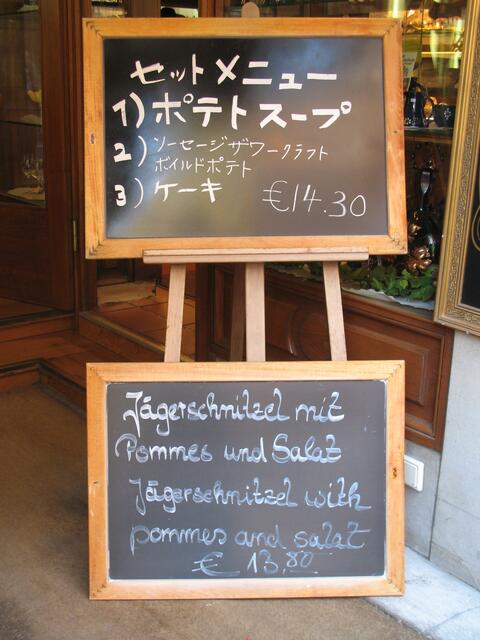 セットメニュー
1) ポテトスープ
2) ソーセージザワークラフト
ボイルドポテト
3) ケーキ €14.30
Jägerschnitzel mit
Pommes und Salat
Jägerschnitzel with
pommes and salat
€ 13,80